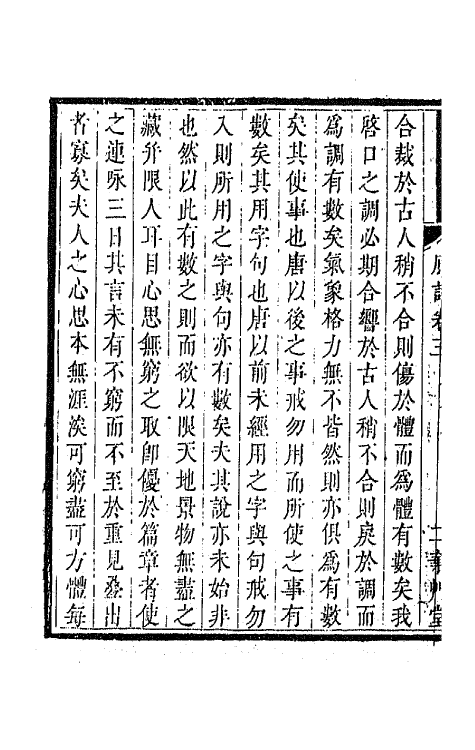 合裁於古人稍不合則傷於體而爲體有數矣我
啓口之調必期合響於古人稍不合則戾於調而
爲調有數矣氣象格力無不皆然則亦俱爲有數
矣其使事也唐以後之事戒勿用而所使之事有
數矣其用字句也唐以前未經用之字與句戒勿
入則所用之字與句亦有數矣夫其說亦未始非
也然以此有數之則而欲以限天地景物無盡之
藏并限人耳目心思無窮之取卽優於篇章者使
之連咏三日其言未有不窮而不至於重見叠出
者寡矣夫人之心思本無涯涘可窮盡可方體每
原詩卷三
二
草堂